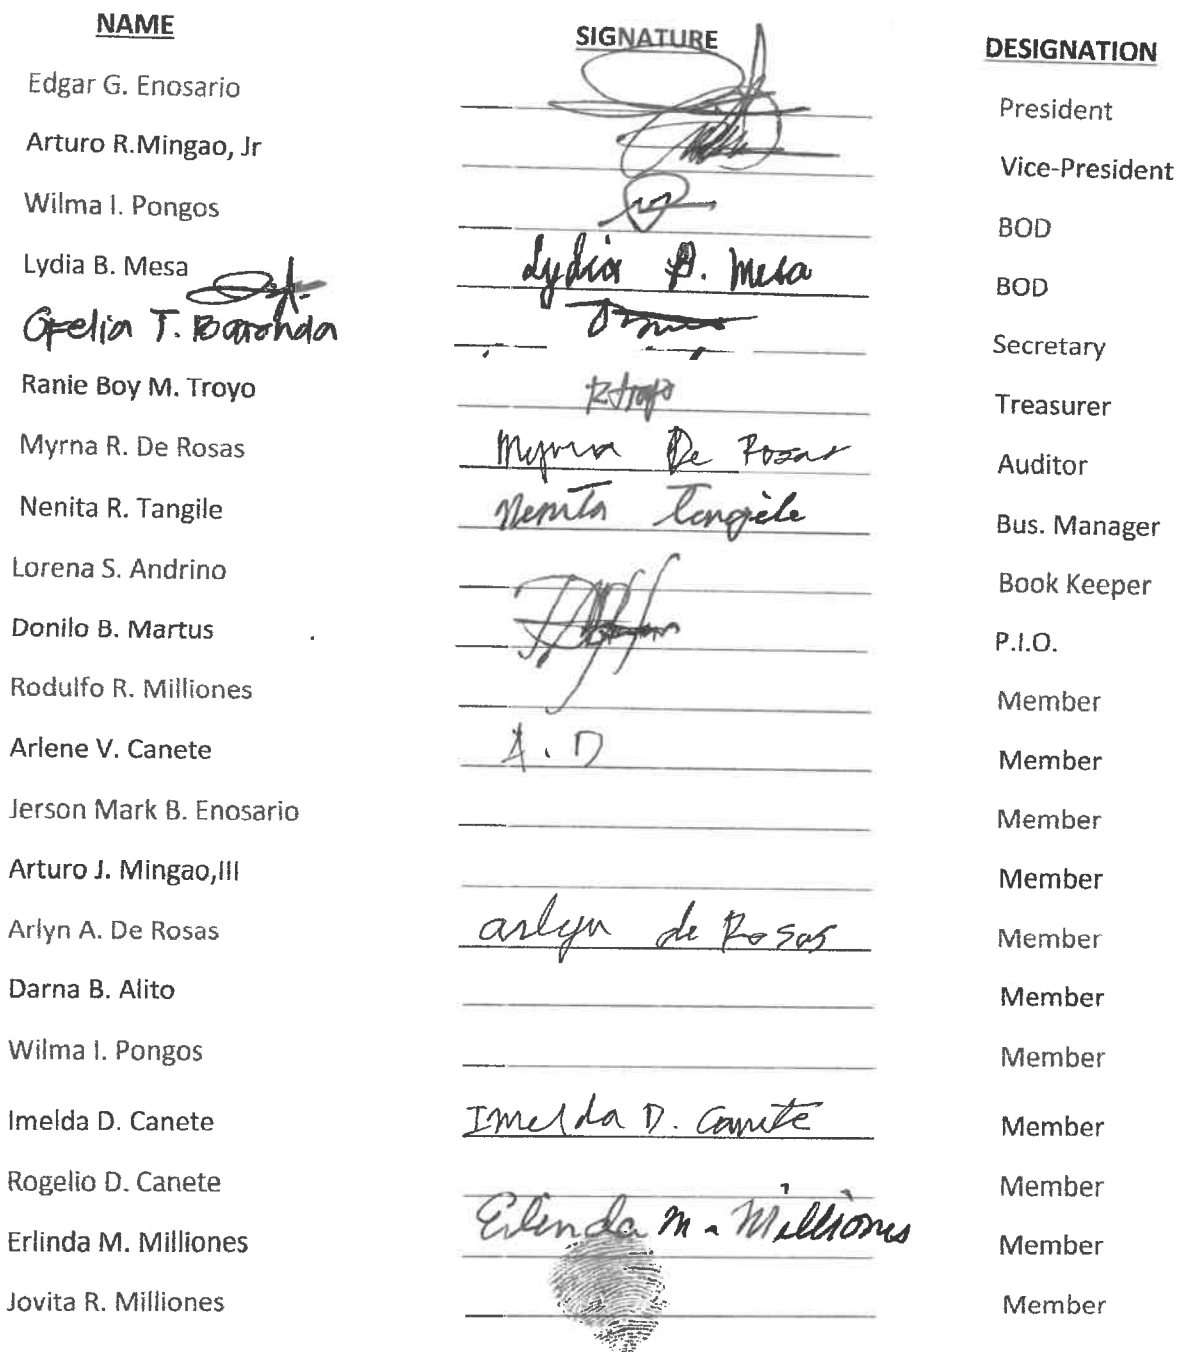 NAME SIGNATURE DESIGNATION
Edgar G. Enosario President
Arturo R.Mingao, Jr Vice-President
Wilma I. Pongos BOD
Lydia B. Mesa Lydia B. Mesa BOD
Ofelia T. Baronda Secretary
Ranie Boy M. Troyo RTroyo Treasurer
Myrna R. De Rosas Myrna De Rosas Auditor
Nenita R. Tangile Nenita Tangile Bus. Manager
Lorena S. Andrino Book Keeper
Donilo B. Martus P.I.O.
Rodulfo R. Milliones Member
Arlene V. Canete A. D Member
Jerson Mark B. Enosario Member
Arturo J. Mingao,III Member
Arlyn A. De Rosas arlyn de Rosas Member
Darna B. Alito Member
Wilma I. Pongos Member
Imelda D. Canete Imelda D. Canete Member
Rogelio D. Canete Member
Erlinda M. Milliones Erlinda M. Milliones Member
Jovita R. Milliones Member